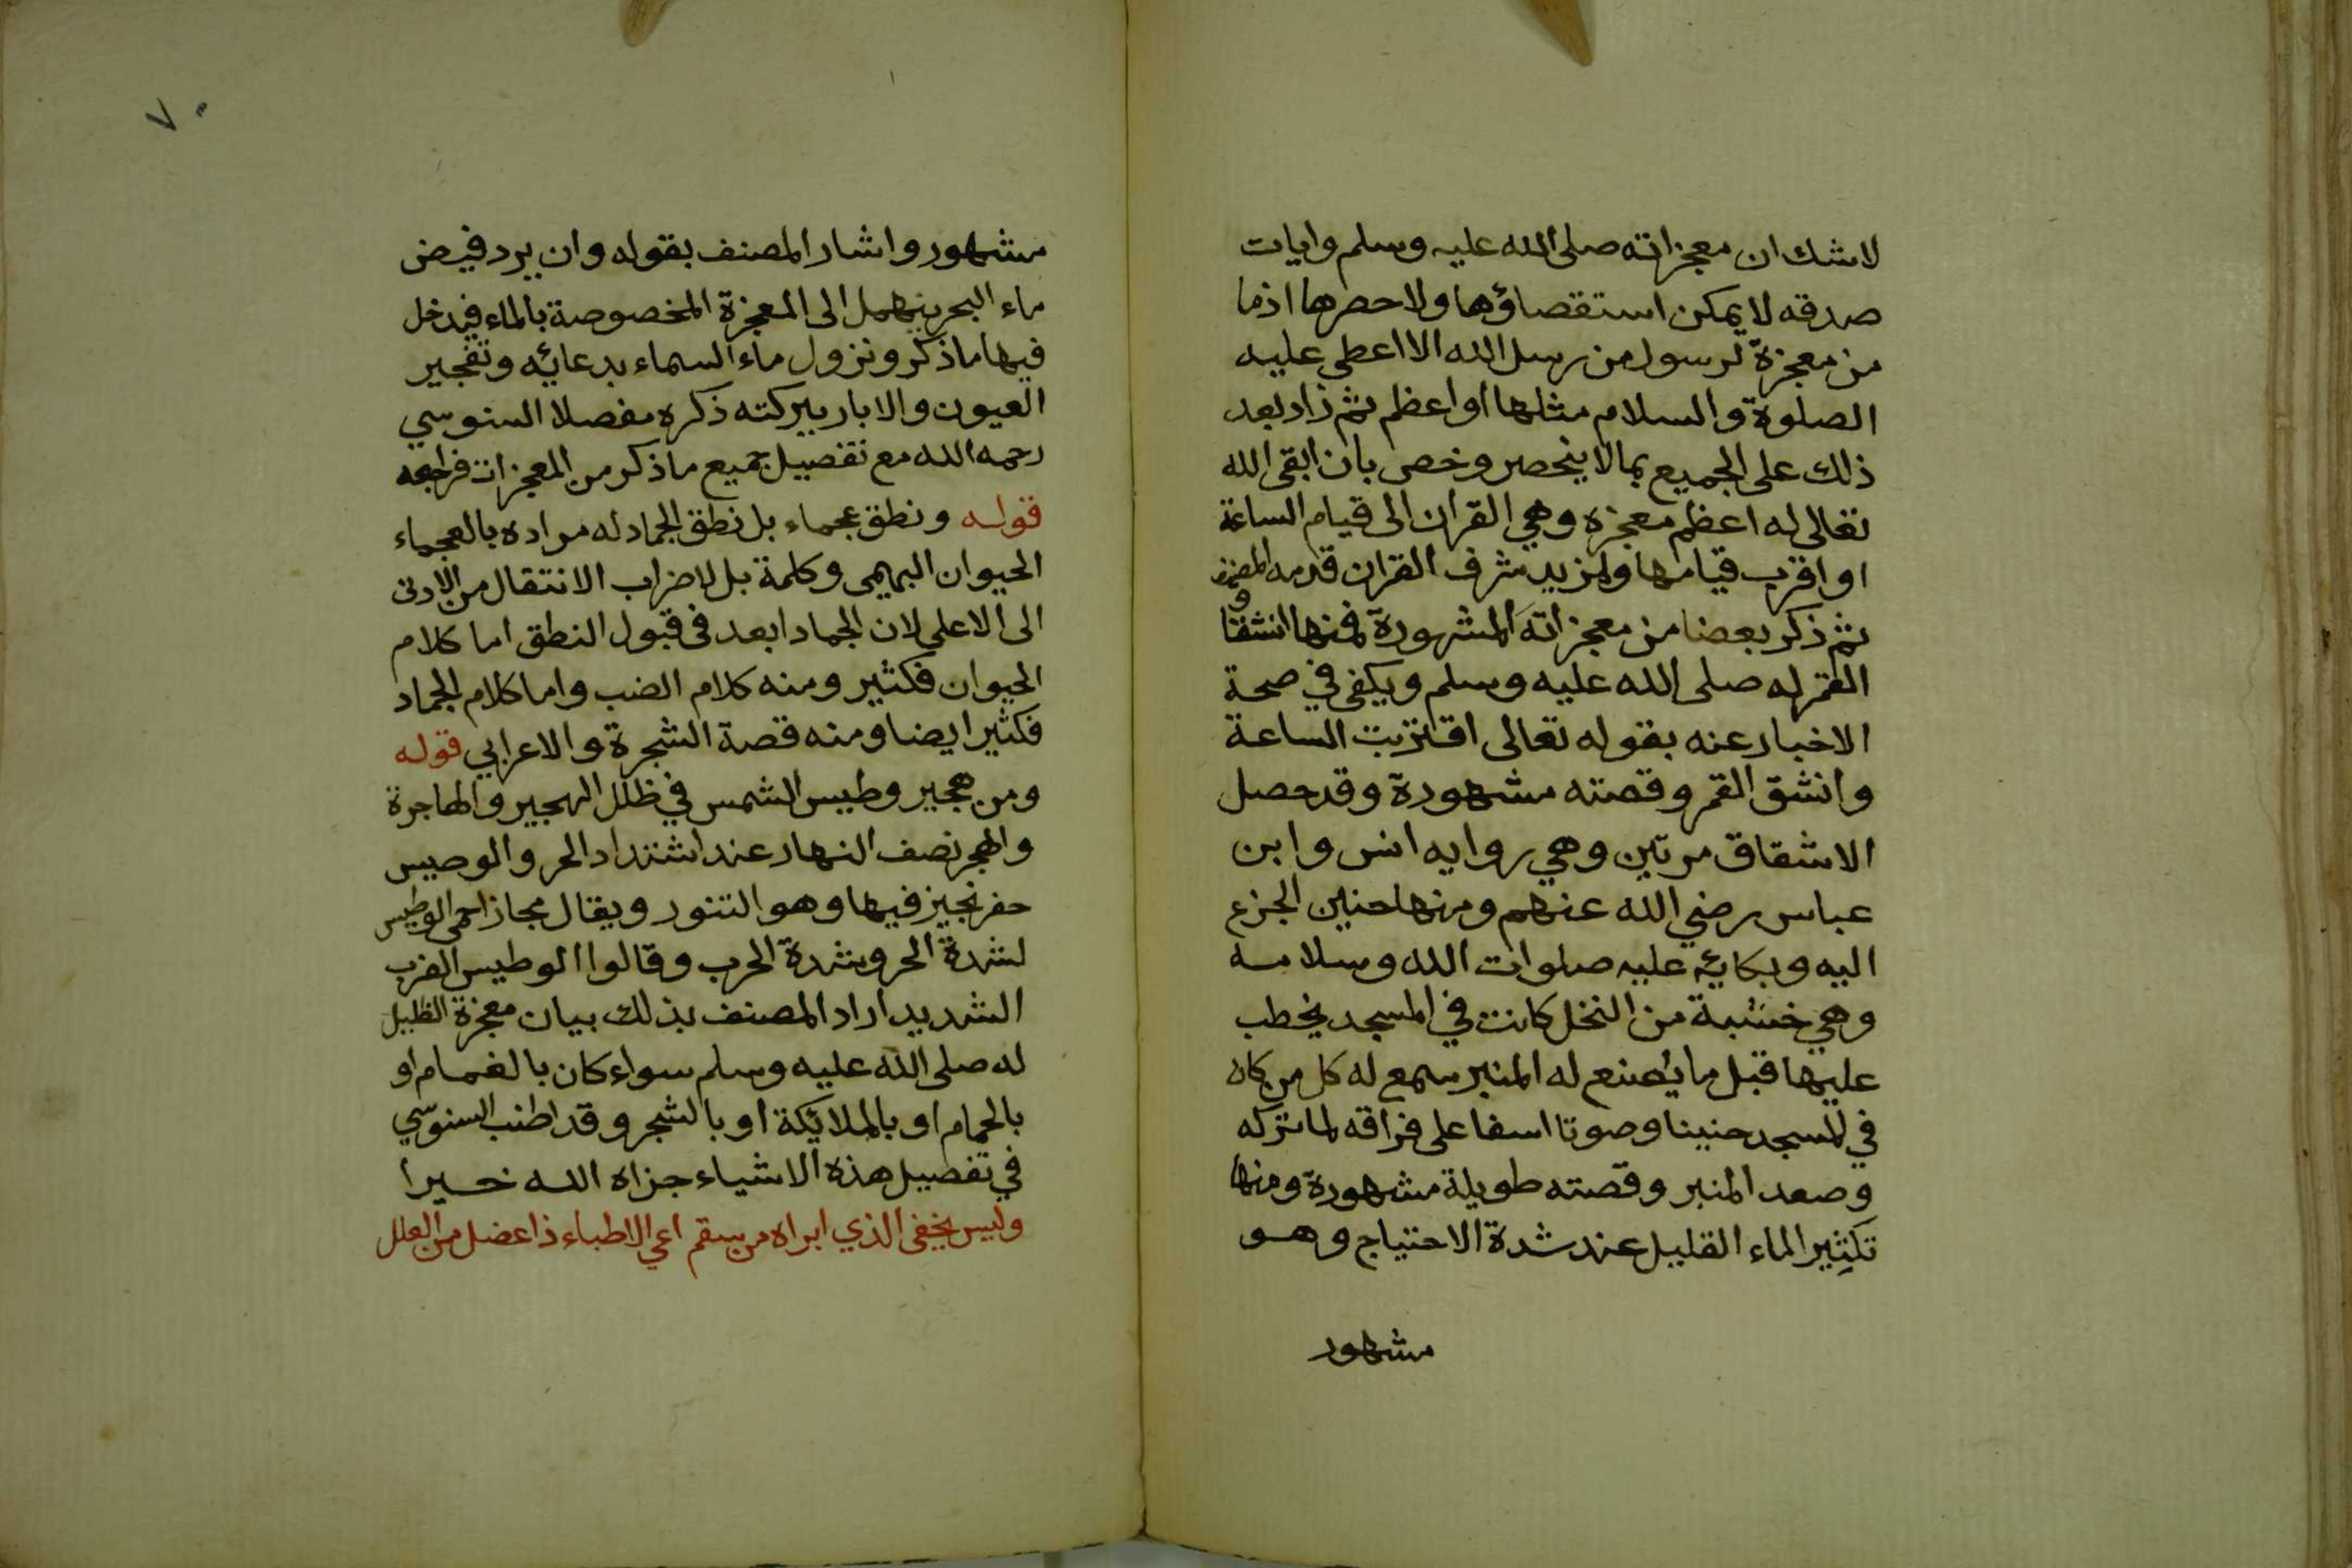 لاشك ان معجزاته صلى الله عليه وسلم وايات
صدقه لا يمكن استقصاؤها ولا حصرها اذ ما
من معجزة لرسول من رسل الله الا اعطى عليه
الصلوة والسلام مثلها او اعظم ثم زاد بعد
ذلك على الجميع بما لا ينحصر وخص بان ابقى الله
تعالى له اعظم معجزه وهي القران الى قيام الساعة
او اقرب قيامها ولمزيد شرف القران قدمه المصنف
ثم ذكر بعضا من معجزاته المشهورة فمنها انشقاق
القمر له صلى الله عليه وسلم ويكفى في صحة
الاخبار عنه بقوله تعالى اقتربت الساعة
وانشق القمر وقصته مشهورة وقد حصل
الاشقاق مرتين وهي روايه انس وابن
عباس رضي الله عنهم ومنها حنين الجزع
اليه وبكائه عليه صلوات الله وسلامه
وهي خشبة من النخل كانت في المسجد يخطب
عليها قبل ما يصنع له المنبر سمع له كل من كان
في المسجد حنينا وصوتا اسفا على فراقه لما تركه
وصعد المنبر وقصته طويلة مشهورة ومنها
تكثير الماء القليل عند شدة الاحتياج وهو
مشهور
٧٠
مشهور واشار المصنف بقوله وان يرد فيض
ماء البحر ينهمل الى المعجزة المخصوصة بالماء فيدخل
فيها ما ذكر ونزول ماء السماء بدعائه وتفجير
العيون والابار ببركته ذكره مفصلا السنوسي
رحمه الله مع تفصيل جميع ما ذكر من المعجزات فراجعه
قوله ونطق عجماء بل نطق الجماد له مراده بالعجماء
الحيوان البهيمى وكلمة بل لاضراب الانتقال من الادنى
الى الاعلى لان الجماد ابعد فى قبول النطق اما كلام
الحيوان فكثير ومنه كلام الضب واما كلام الجماد
فكثير ايضا ومنه قصة الشجرة والاعرابي قوله
ومن هجير وطيس الشمس في ظلل الهجير والهاجرة
والهجر نصف النهار عند اشتداد الحر والوصيس
حفر نجيز فيها وهو التنور ويقال مجازا حمى الوطيس
لشدة الحر وشدة الحرب وقالوا الوطيس الضرب
الشديد اراد المصنف بذلك بيان معجزة الظليل
له صلى الله عليه وسلم سواء كان بالغمام او
بالحمام او بالملائكة او بالشجر وقد اطنب السنوسي
في تفصيل هذه الاشياء جزاه الله خيرا
وليس يخفى الذي ابراه من سقم اعي الاطباء ذا عضل من العلل